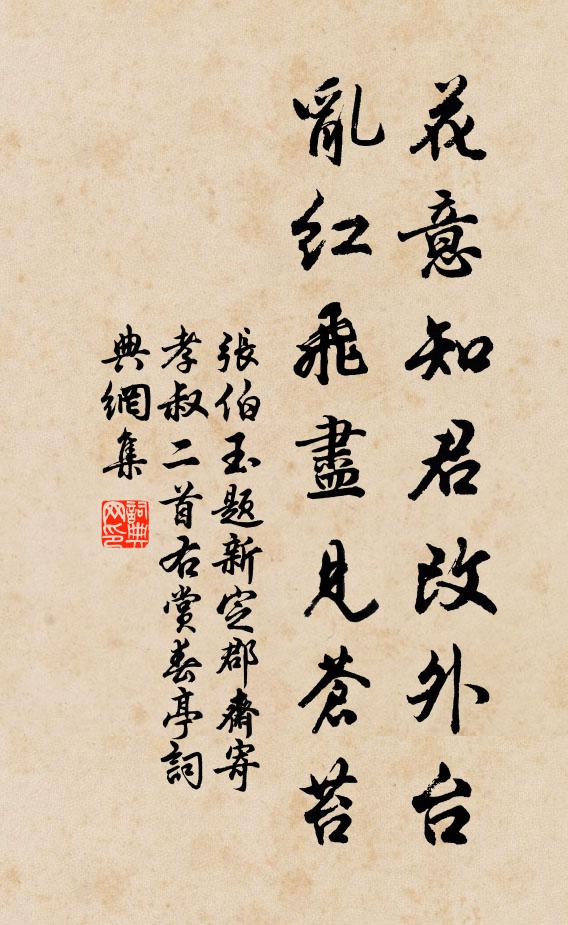 花意知君改外台
亂紅飛盡見蒼苔
張伯玉題新定郡齋寄
孝叔二首右賞春亭詞
典網集
詞典網印